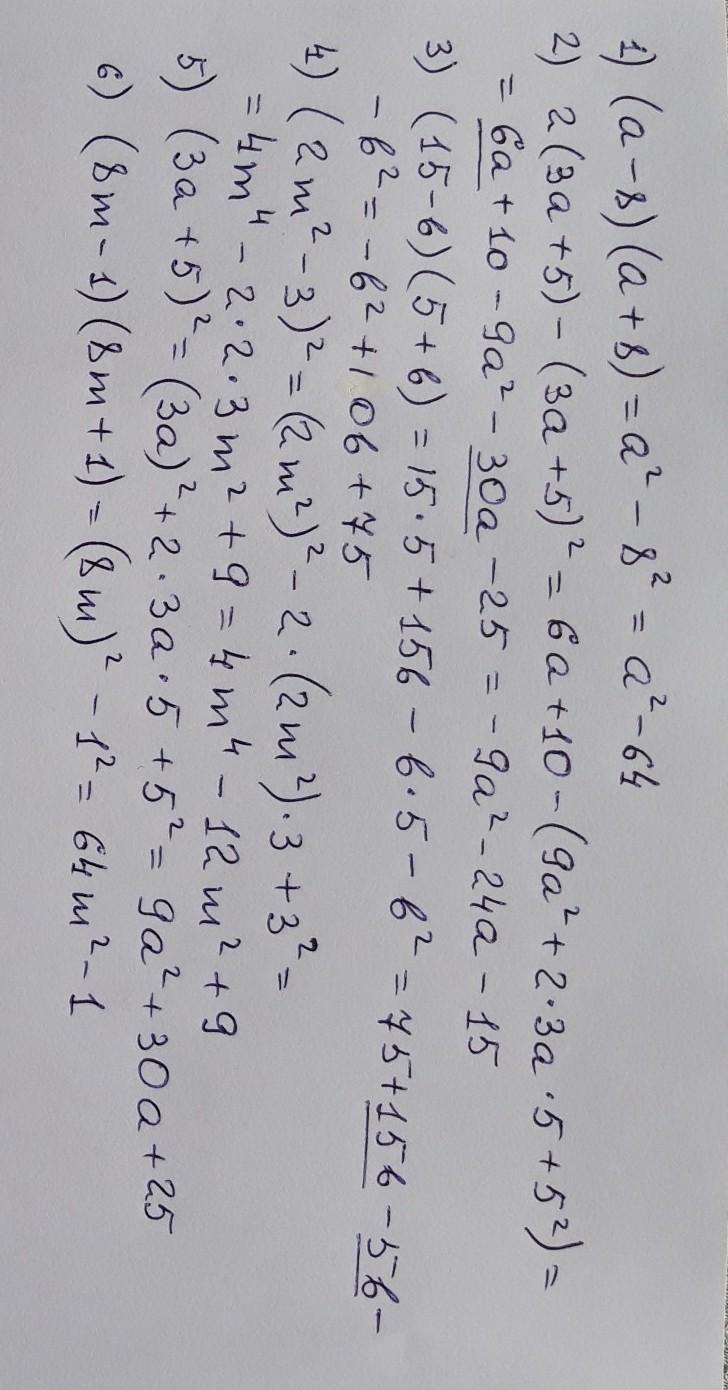 1) (a-8)(a+8)=a²-8²=a²-64
2) 2(3a+5)-(3a+5)²=6a+10-(9a²+2·3a·5+5²)=
=6a+10-9a²-30a-25=-9a²-24a-15
3) (15-b)(5+b)=15·5+15b-b·5-b²=75+15b-5b-
-b²=-b²+10b+75
4) (2m²-3)²=(2m²)²-2·(2m²)·3+3²=
=4m⁴-2·2·3m²+9=4m⁴-12m²+9
5) (3a+5)²=(3a)²+2·3a·5+5²=9a²+30a+25
6) (8m-1)(8m+1)=(8m)²-1²=64m²-1